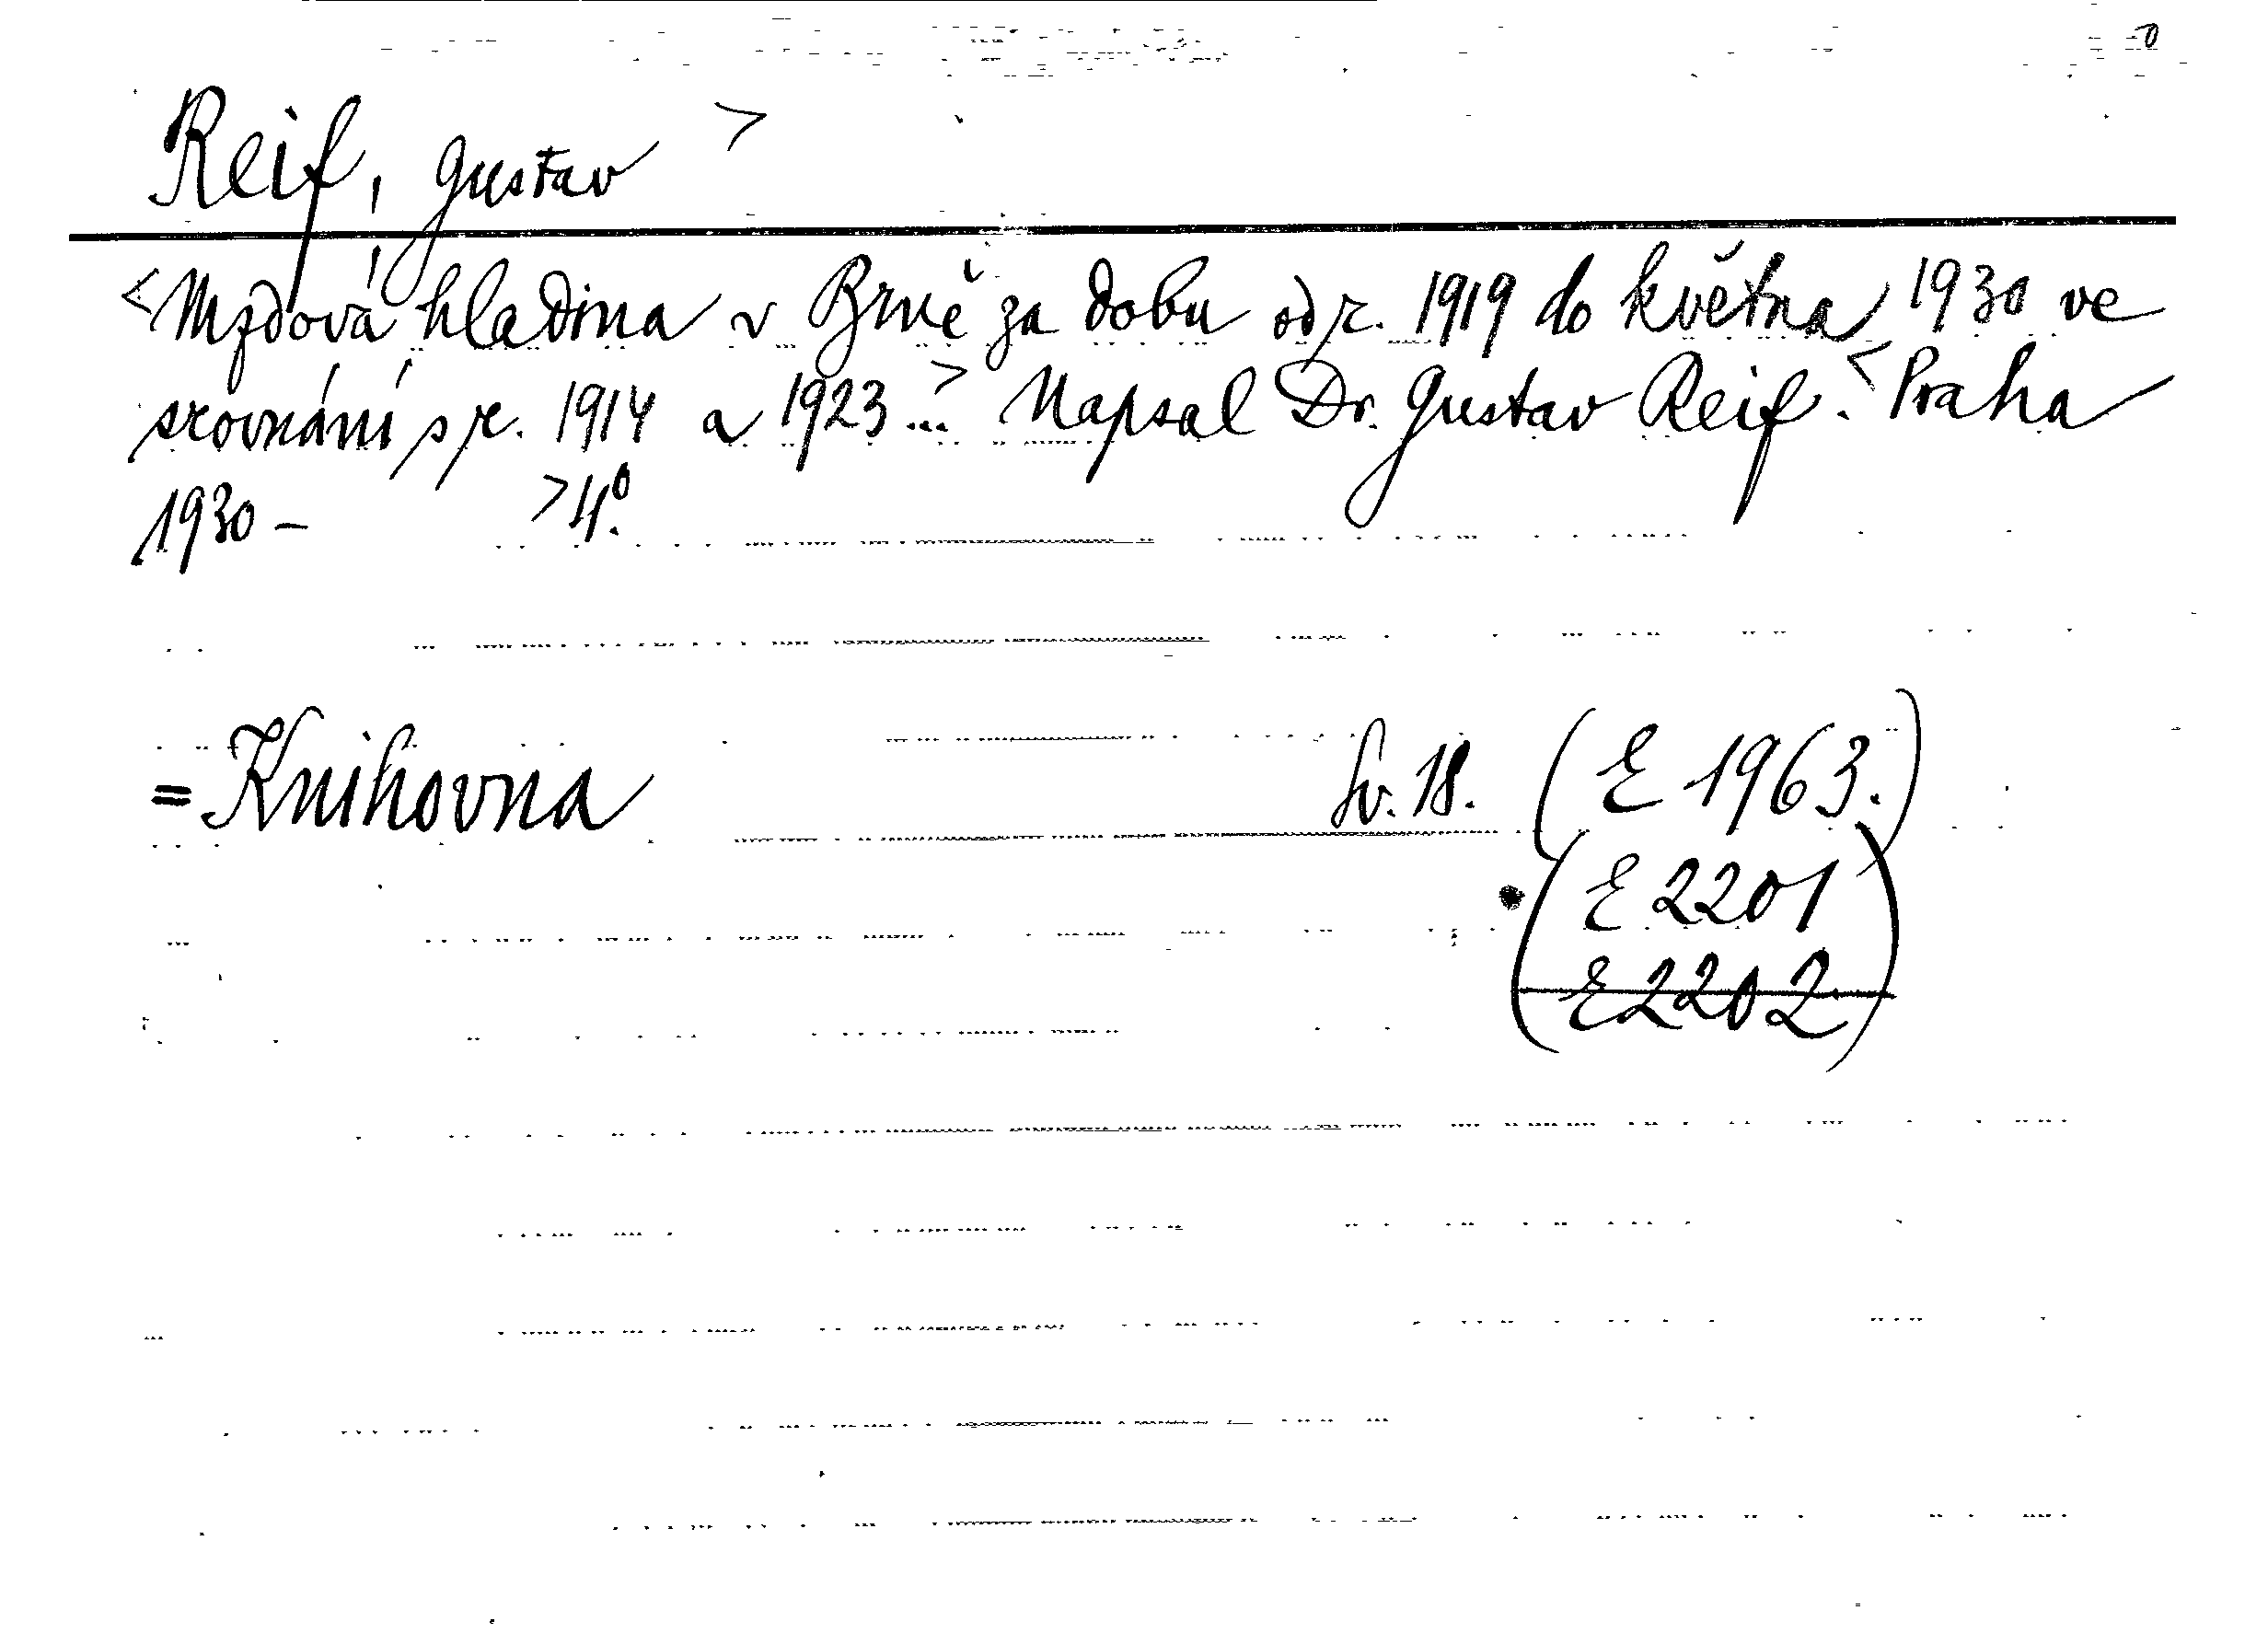 Reif, Gustav >
<Mzdová hladina v Brně za dobu od r. 1919 do května 1930 ve
srovnání s r. 1914 a 1923...> Napsal Dr. Gustav Reif. <Praha
1930 – >4⁰.
= Knihovna Sv. 18. (E 1963.)
(E 2201
E 2202)